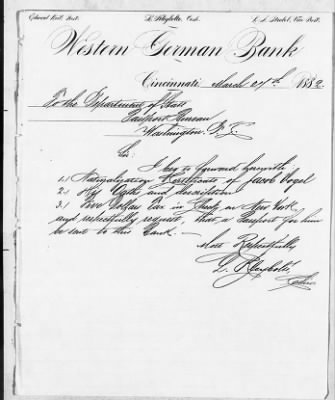 L. Kleybolte, Cash.
Western German Bank
Cincinnati March 27th 1882
To the Department of State
Passport Bureau
Washington D. C.
I beg to forward herewith
1.) Naturalization Certificate of Jacob Vogel
2.) His Oath and description
3.) Five Dollar in Check on New York
and respectfully request that a Passport for him
be sent to this Bank.
Most Respectfully
L. Kleybolte
Cashier